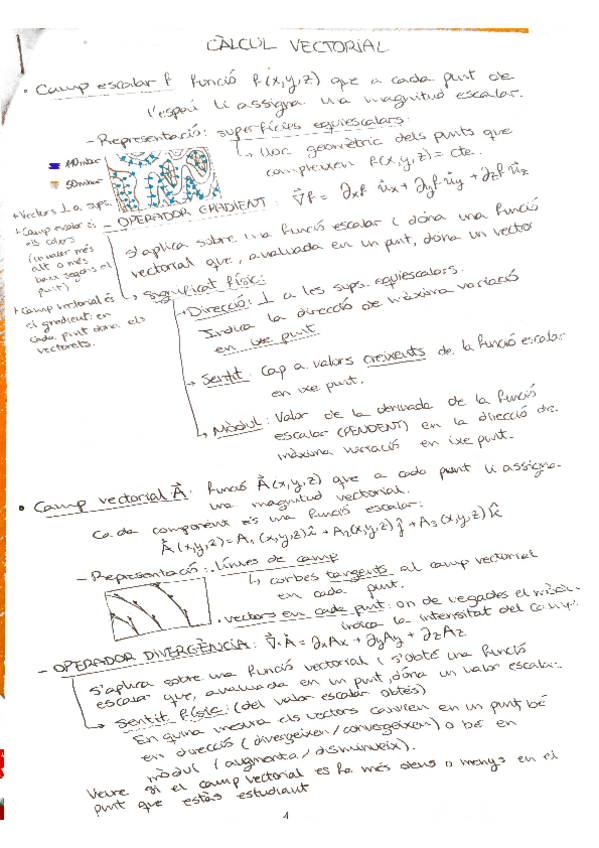 CÀLCUL VECTORIAL
• Camp escalar f funció f(x,y,z) que a cada punt de
l'espai li assigna una magnitud escalar.
- Representació: superfícies equiescalars:
↳ lloc geomètric dels punts que
compleixen f(x,y,z) = cte.
110mbar
50mbar
+ Vectors ⊥ a sups.
+ Camp escalar és
els colors
(un valor més
alt o més
baix segons el
punt)
+ Camp vectorial és
el gradient: en
cada punt dona els
vectorets.
- OPERADOR GRADIENT: ∇⃗f = ∂xf u⃗x + ∂yf u⃗y + ∂zf u⃗z
S'aplica sobre una funció escalar i dóna una funció
vectorial que, avaluada en un punt, dóna un vector
↳ significat físic:
• Direcció: ⊥ a les sups. equiescalars.
Indica la direcció de màxima variació
en ixe punt.
→ Sentit: Cap a valors creixents de la funció escalar
en ixe punt.
↳ Mòdul: Valor de la derivada de la funció
escalar (PENDENT) en la direcció de
màxima variació en ixe punt.
• Camp vectorial A⃗: funció A⃗(x,y,z) que a cada punt li assigna
una magnitud vectorial.
Cada component és una funció escalar:
A⃗(x,y,z) = A₁(x,y,z)î + A₂(x,y,z)ĵ + A₃(x,y,z)k̂
- Representació: • línies de camp
↳ corbes tangents al camp vectorial
en cada punt.
• vectors en cada punt: on de vegades el mòdul
indica la intensitat del camp.
- OPERADOR DIVERGÈNCIA: ∇⃗·A⃗ = ∂xAx + ∂yAy + ∂zAz
S'aplica sobre una funció vectorial i s'obté una funció
escalar que, avaluada en un punt, dóna un valor escalar.
→ Sentit físic: (del valor escalar obtés)
En quina mesura els vectors canvien en un punt bé
en direcció (divergeixen/convergeixen) o bé en
mòdul (augmenta/disminueix).
Veure si el camp vectorial es fa més dens o menys en el
punt que estàs estudiant
1